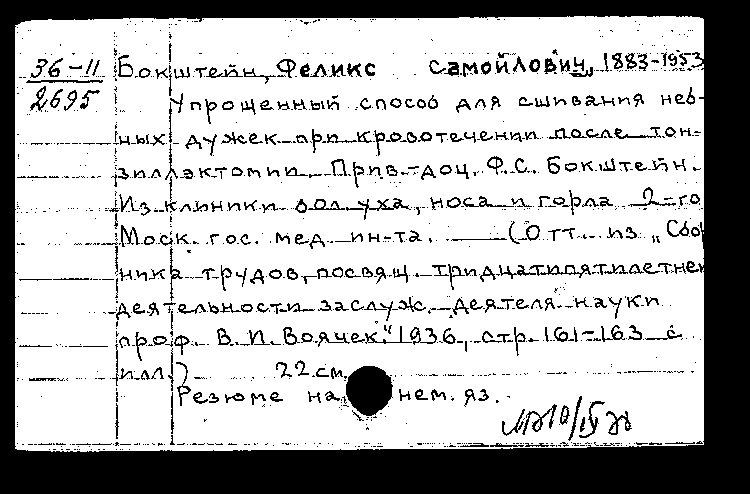 36-11 Бокштейн, Феликс Самойлович, 1883-1953
2695 Упрощенный способ для сшивания нёб-
ных дужек при кровотечении после тон-
зиллэктомии. Прив.-доц. Ф.С. Бокштейн.
Из клиники бол. уха, носа и горла 2-го
Моск. гос. мед. ин-та. (Отт. из „Сбор
ника трудов, посвящ. тридцатипятилетней
деятельности заслуж. деятеля науки
проф. В. И. Воячек." 1936, стр. 161-163 с
илл.) 22 см.
Резюме на нем. яз.